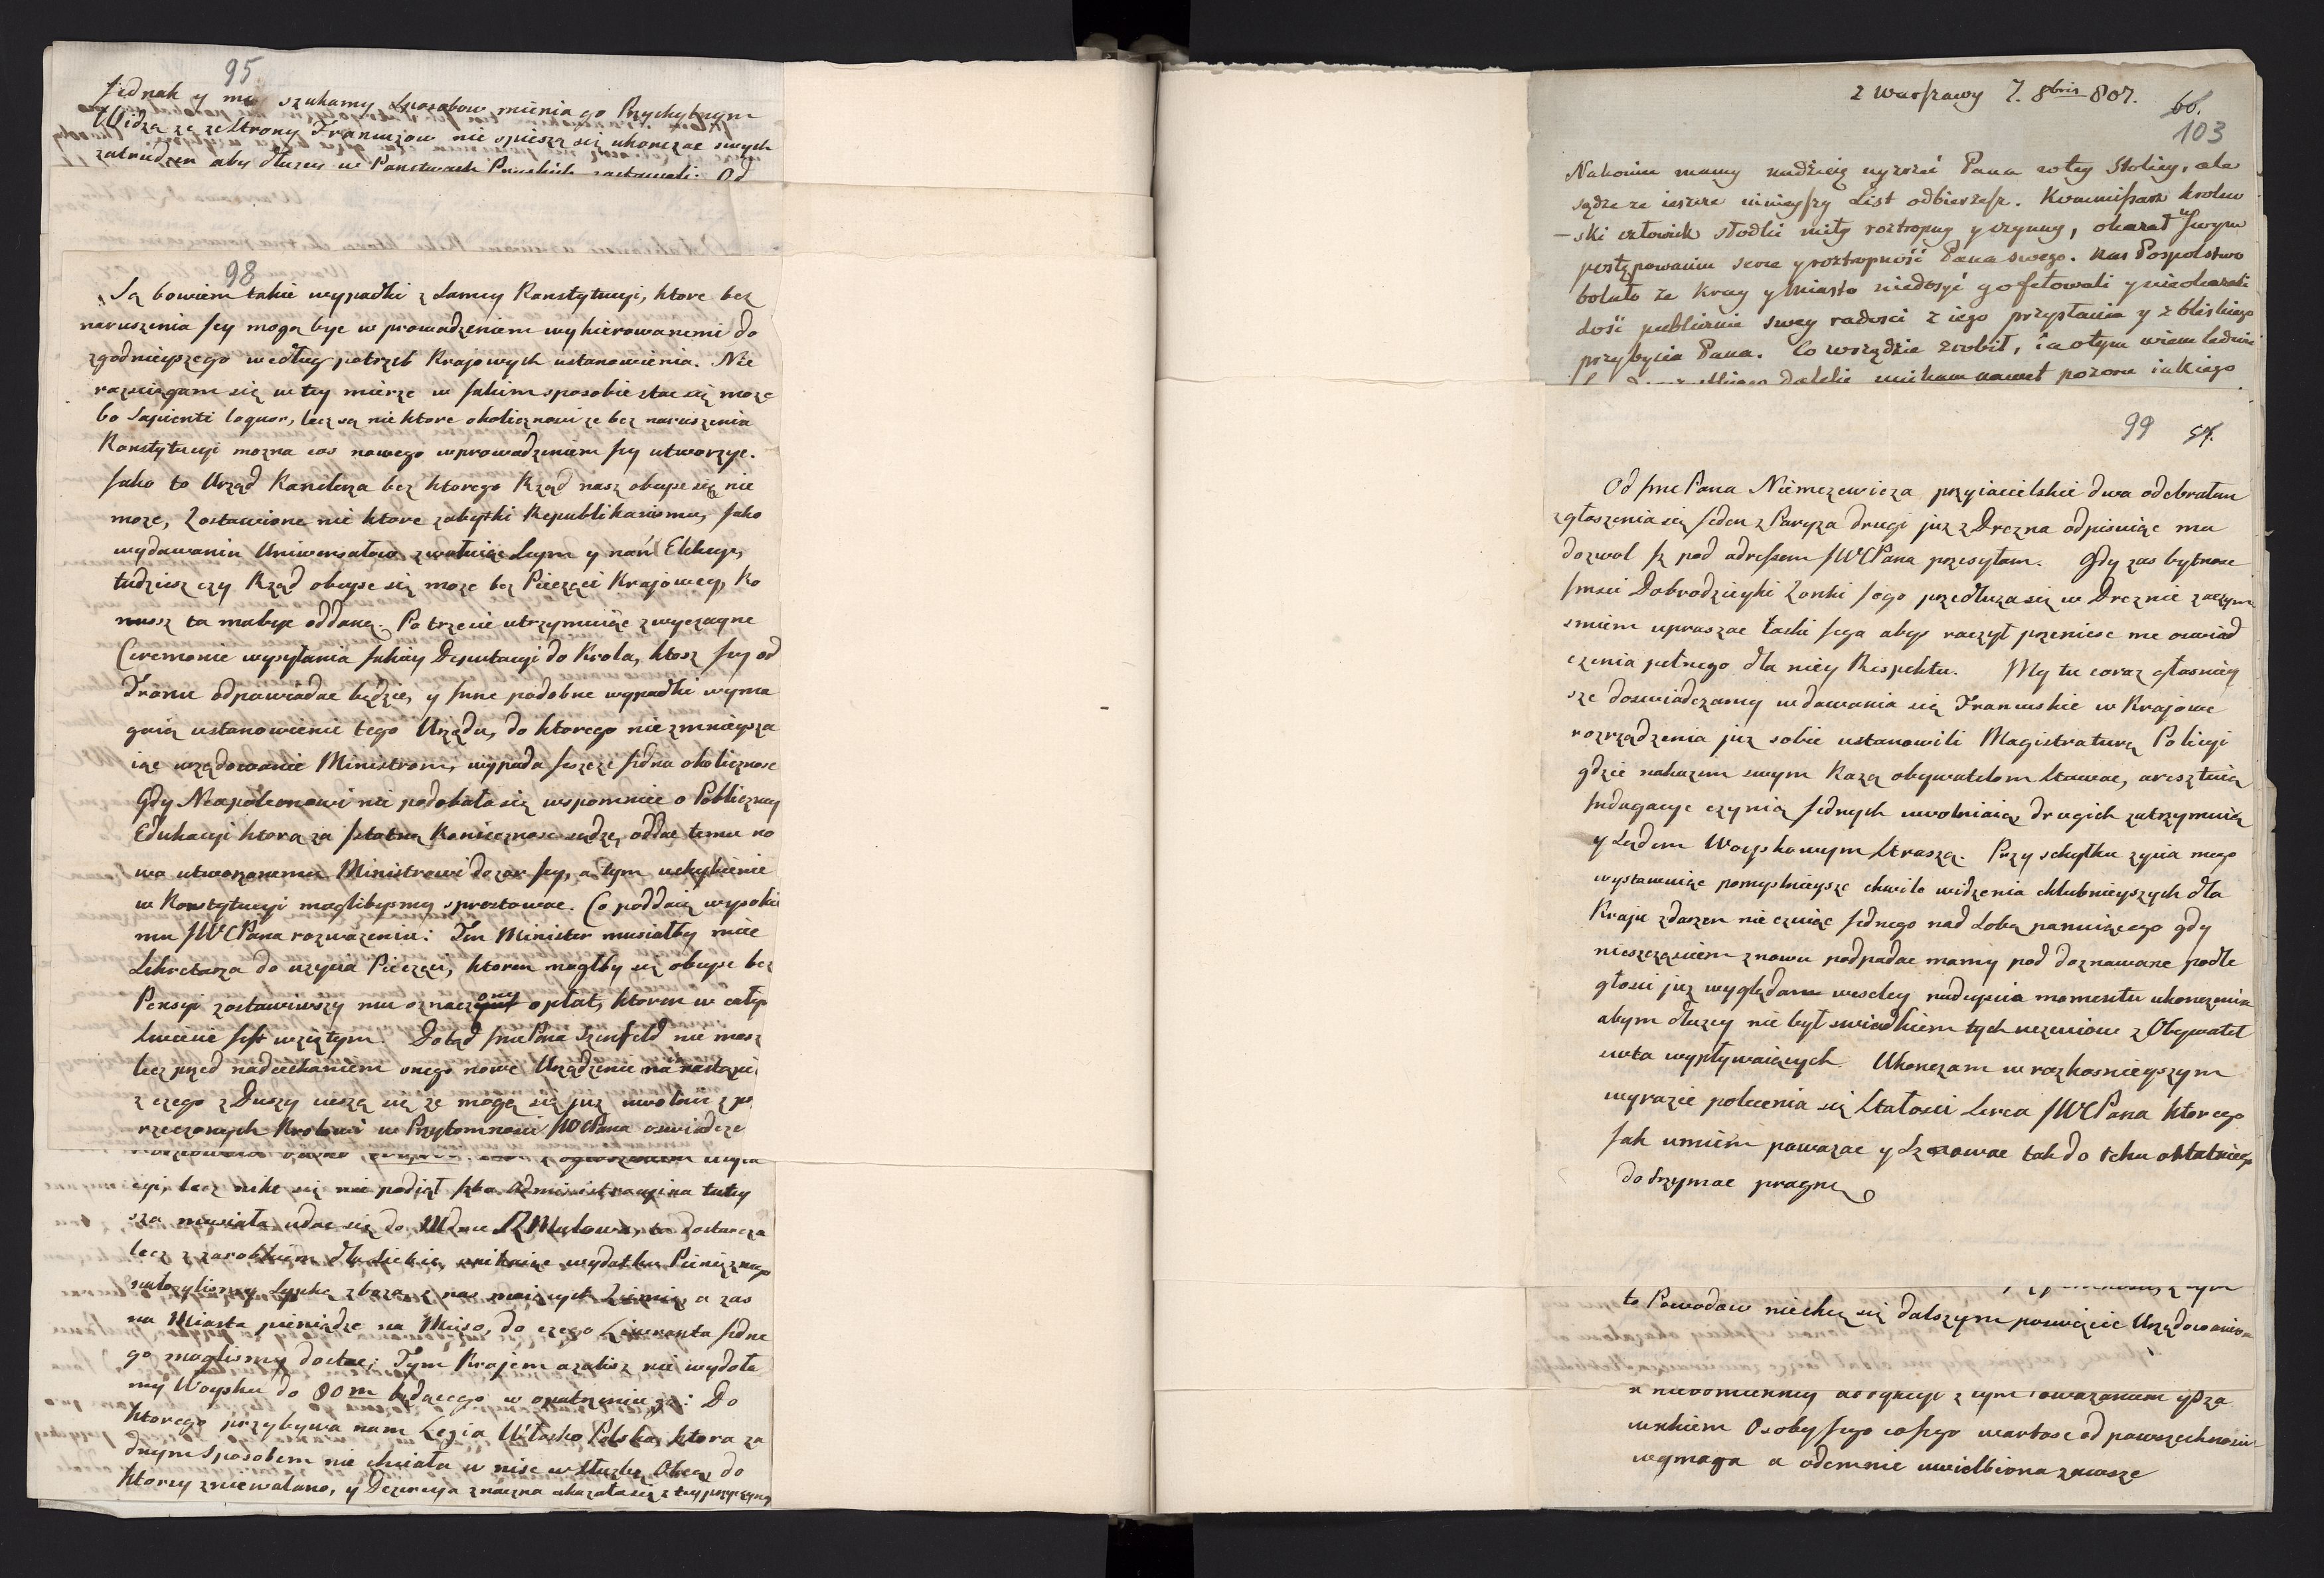 95
Jednak y my szukamy Sposobow mienia go Przychylnym
Widzą ze ze Strony Francuzow nie spieszą się ukonczac swych
zatrudzen aby dłuzey w Panstwach Pruskich zostawali: Od
98
Są bowiem takie wypadki z Samey Konstytucyi, ktore bez
naruszenia Jey mogą byc w prowadzeniem wykierowanemi do
zgodnieyszego według potrzeb Krajowych ustanowienia. Nie
rozciągam się w tey mierze w Jakim sposobie stac się moze
bo Sapienti loquor, lecz są nie ktore okolicznosci ze bez naruszenia
Konstytucyi mozna cos nowego wprowadzeniem Jey utworzyc.
Jako to Urząd Kanclerza bez ktorego Rząd nasz obeyse się nie
moze, Zostawione nie ktore zabytki Republikanismu, Jako
wydawania Uniwersałow zwołuiąc Seym y nań Elekcye,
tudziesz czy Rząd obeyse się moze bez Pieczęci Krajowey, Ko
musz ta ma byc oddaną. Po trzecie utrzymuiąc zwyczayne
Ceremonie wysyłania Jakiey Deputacyi do Krola, ktosz Jey od
Tronu odpowiadac będzie, y Jnne podobne wypadki wyma
gaią ustanowienie tego Urzędu, do ktorego nie zmnieysza
iąc urzędowanie Ministrom, wypada Jeszcze Jedna okolicznosc
Gdy Neapoleonowi nie podobało się wspomniec o Publiczney
Edukacyi ktorą za Jstotną Koniecznosc sądzę, oddac temu no
wo utworzonemu Ministrowi dozor Jey, a tym uchybienie
w Konstytucyi moglibysmy sprostowac. Co poddaię wysokie
mu JWCPana rozwazeniu: Ten Minister musiałby miec
Sekretarza do uzycia Pieczęci, ktoren mogłby się obeyse bez
Pensyi zostawiwszy mu oznaczony opłat, ktoren w całym
Swiecie Jest wziętym. Dotąd JmePana Szenfeld nie masz
lecz przed nadiechaniem onego nowe Urządzenie na nastąpi
z czego z Duszy ciesze się ze mogę się juz uwolnic z po
rzeczonych Krolowi w Przytomnosci JWCPana oswiadcze
cyi, lecz nikt się nie podiął Jzba Administracyina tutey
sza musiała udac się do to dostarcza
lecz z zarobkiem dla Siebie, unikaiąc wydatku Pienięznego
nałozylismy Sepkę zboza z nas maiących Ziemię, a zas
na Miasta pieniądze na Mięso, do czego Liweranta Jedne
go moglismy dostac; Tym Krajem azalisz nie wydoła
my Woysku do 80m będącego w opatrzeniu go: Do
ktorego przybywa nam Legia Włosko Polska, ktora za
dnym Sposobem nie chciała w nisc w Słuzbę Obcą do
ktorey zniewalano, y Dezercya znaczna okazała się z tey przyczyny
z Warszawy 7. 8bris 807.
66.
103
Nakoniec mamy nadzieię uyrzeć Pana w tey Stolicy, ale
sądze ze ieszcze ninieyszy List odbierzesz. Kommissarz krolew
-ski człowiek słodki miły roztropny y czynny, okazał w Swym
postępowaniu serce y roztropność Pana swego. Nas Pospolstwo
bolało ze Kray y Miasto niedosyć go fetowali y nieokazali
dość publicznie swey radosci z iego przysłania y z bliskiego
przybycia Pana. Co wrządzie zrobił, ia o tym wiem ledwie
unikam nawet pozoru iakiego
99 57.
Od Jme Pana Niemczewicza przyiacielskie dwa odebrałem
zgłoszenia się Jeden z Paryza drugi juz z Drezna odpisuiąc mu
dozwol Jz pod adressem JWCPana przesyłam. Gdy zas bytnosc
Jmsci Dobrodzieyki Zonki Jego przedłuza się w Dreznie zaczym
smiem upraszac łaski Jego abys raczył przeniesc me oswiad
czenia pełnego dla niey Respektu. My tu coraz głosniey
sze doswiadczamy wdawania się Francuskie w Krajowe
rozrządzenia juz sobie ustanowili Magistraturą Policyi
gdzie nakazem swym Kazą obywatelom Stawac, aresztuią
Jndagacye czynią Jednych uwolniaią drugich zatrzymuią
y Sądem Woyskowym Straszą. Przy schyłku zycia mego
wystawuiąc pomyslnieysze chwile widzenia chlubnieyszych dla
Kraju zdarzen nie czuiąc Jednego nad Sobą panuiącego gdy
nieszczęsciem znowu podpadac mamy pod doznawane podle
głosci juz wyglądam weseley nadeyscia momentu ukonczenia
abym dłuzey nie był swiadkiem tych ucziuciow z Obywatel
stwa wypływaiących. Ukonczam w rozkosnieyszym
wyrazie polecenia się Stałosci Serca JWCPana ktorego
Jak umiem powazac y Szanowac tak do tchu ostatniego
dotrzymac pragnę
to Powodow niechcę się dalszym poswięcic Urzędowaniom
unkiem Osoby Jego co Jego wartosc od powszechnosci
wymaga a odemnie uwielbiona zawsze